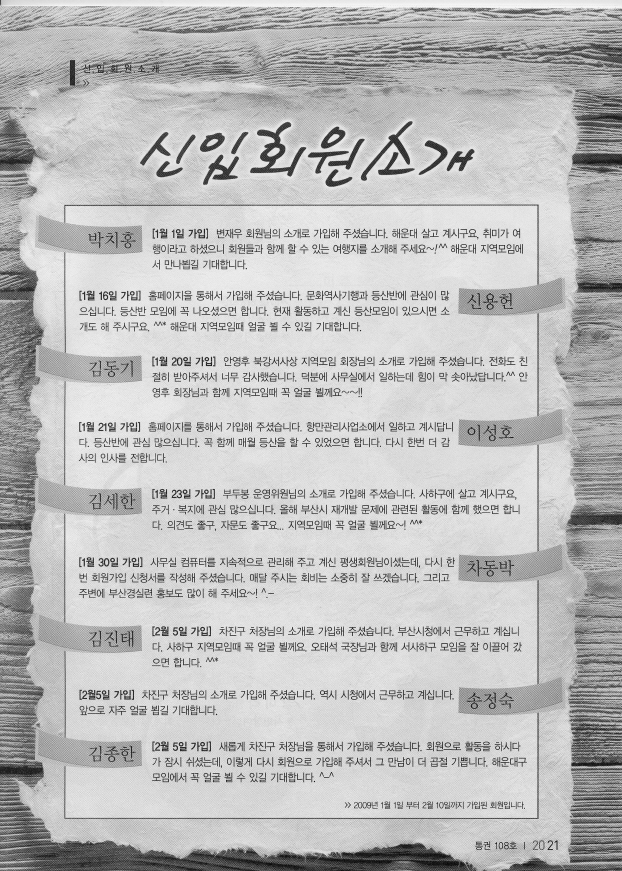 신 입 회 원 소 개
>>
신입회원소개
박치홍
[1월 1일 가입] 변재우 회원님의 소개로 가입해 주셨습니다. 해운대 살고 계시구요, 취미가 여
행이라고 하셨으니 회원들과 함께 할 수 있는 여행지를 소개해 주세요~!^^ 해운대 지역모임에
서 만나뵙길 기대합니다.
[1월 16일 가입] 홈페이지을 통해서 가입해 주셨습니다. 문화역사기행과 등산반에 관심이 많
으십니다. 등산반 모임에 꼭 나오셨으면 합니다. 현재 활동하고 계신 등산모임이 있으시면 소
개도 해 주시구요. ^^* 해운대 지역모임때 얼굴 뵐 수 있길 기대합니다.
신용헌
김동기
[1월 20일 가입] 안영후 북강서사상 지역모임 회장님의 소개로 가입해 주셨습니다. 전화도 친
절히 받아주셔서 너무 감사했습니다. 덕분에 사무실에서 일하는데 힘이 막 솟아났답니다.^^ 안
영후 회장님과 함께 지역모임때 꼭 얼굴 뵐께요~~!!
[1월 21일 가입] 홈페이지를 통해서 가입해 주셨습니다. 항만관리사업소에서 일하고 계시답니
다. 등산반에 관심 많으십니다. 꼭 함께 매월 등산을 할 수 있었으면 합니다. 다시 한번 더 감
사의 인사를 전합니다.
이성호
김세한
[1월 23일 가입] 부두봉 운영위원님의 소개로 가입해 주셨습니다. 사하구에 살고 계시구요,
주거 · 복지에 관심 많으십니다. 올해 부산시 재개발 문제에 관련된 활동에 함께 했으면 합니
다. 의견도 좋구, 자문도 좋구요... 지역모임때 꼭 얼굴 뵐께요~! ^^*
[1월 30일 가입] 사무실 컴퓨터를 지속적으로 관리해 주고 계신 평생회원님이셨는데, 다시 한
번 회원가입 신청서를 작성해 주셨습니다. 매달 주시는 회비는 소중히 잘 쓰겠습니다. 그리고
주변에 부산경실련 홍보도 많이 해 주세요~! ^.~
차동박
김진태
[2월 5일 가입] 차진구 처장님의 소개로 가입해 주셨습니다. 부산시청에서 근무하고 계십니
다. 사하구 지역모임때 꼭 얼굴 뵐께요. 오태석 국장님과 함께 서사하구 모임을 잘 이끌어 갔
으면 합니다. ^^*
[2월5일 가입] 차진구 처장님의 소개로 가입해 주셨습니다. 역시 시청에서 근무하고 계십니다.
앞으로 자주 얼굴 뵙길 기대합니다.
송정숙
김종한
[2월 5일 가입] 새롭게 차진구 처장님을 통해서 가입해 주셨습니다. 회원으로 활동을 하시다
가 잠시 쉬셨는데, 이렇게 다시 회원으로 가입해 주셔서 그 만남이 더 곱절 기쁩니다. 해운대구
모임에서 꼭 얼굴 뵐 수 있길 기대합니다. ^-^
>> 2009년 1월 1일 부터 2월 10일까지 가입된 회원입니다.
통권 108호 | 20 21